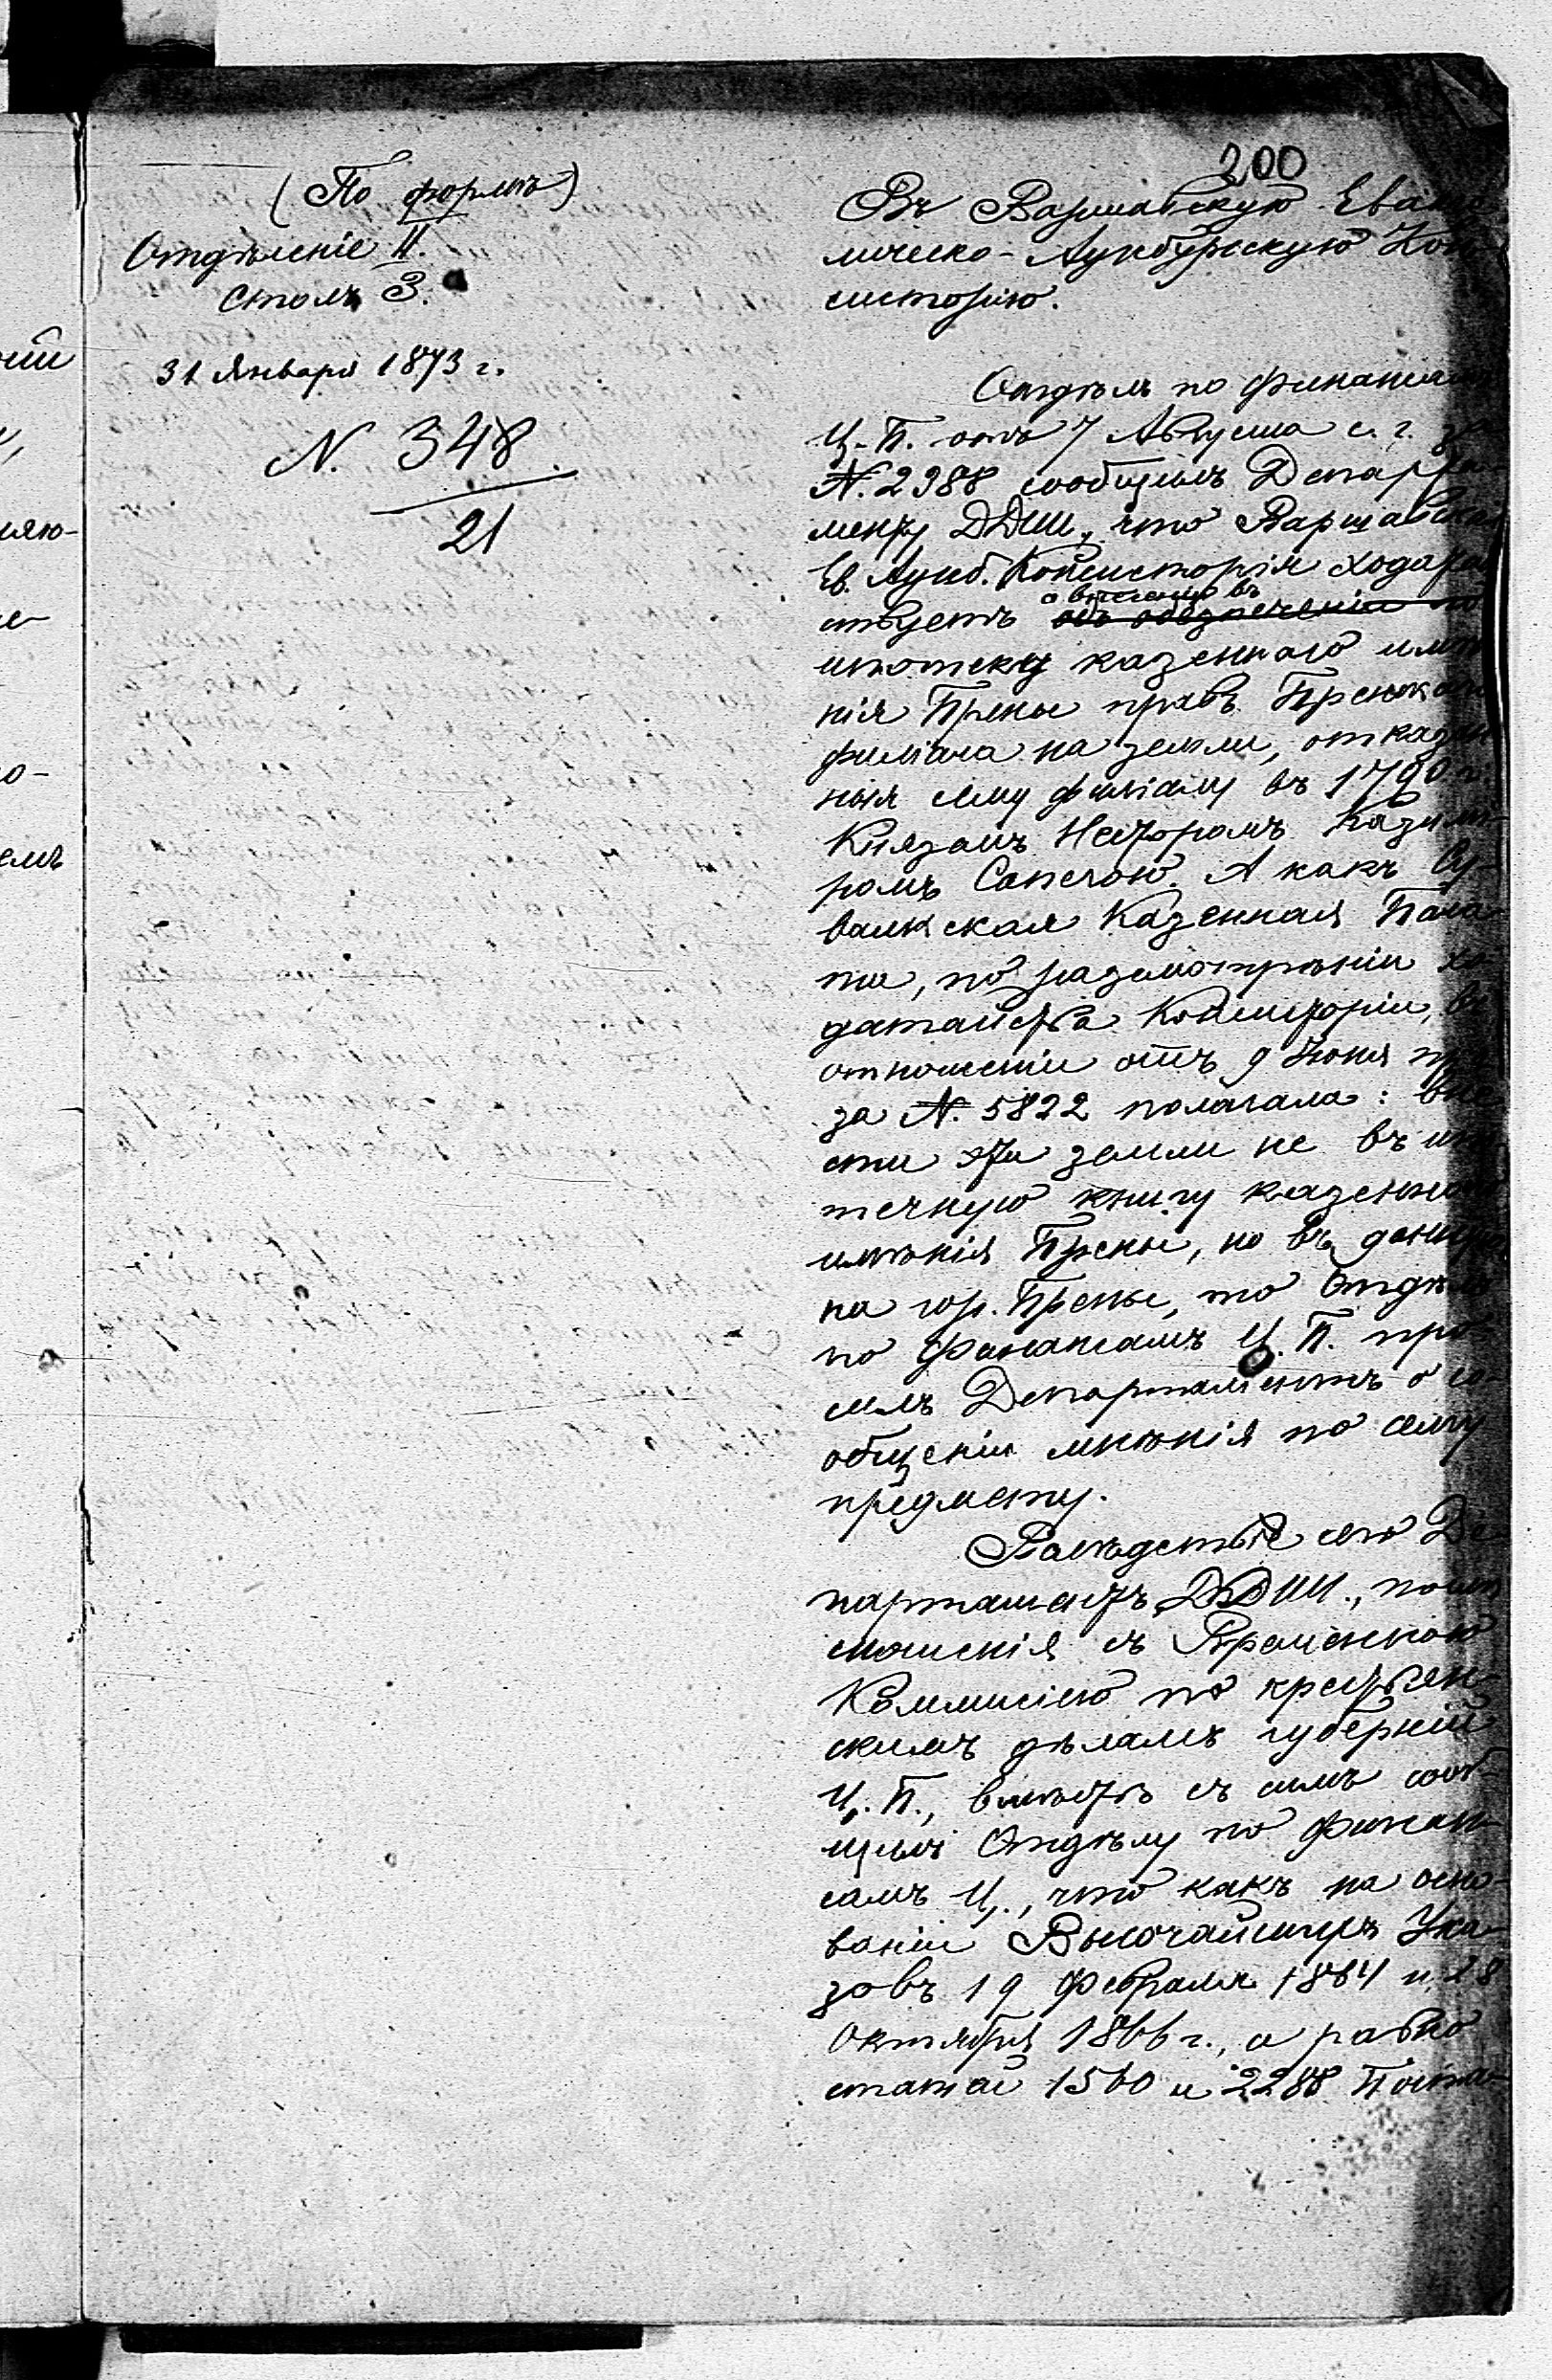 200
(По формѣ)
Отдѣленіе II.
Столъ 3.
31 Января 1873 г.
N. 348.
21
Въ Варшавскую Еванге
лическо-Аугсбургскую Кон
систорію.
Отдѣлъ по финансамъ
Ц.П. отъ 7 Августа с. г. за
N. 2988 сообщилъ Департа-
менту ДДИИ, что Варшавская
Ев. Аугсб. Консисторія ходатай
ствуетъ о внесеніи въ
объ обезпеченіи по
ипотеку казеннаго имѣ
нія Прены правъ Пренскаго
филіала на земли, отказан
ныя сему филіалу въ 1790 г.
Княземъ Несторомъ Казими-
ромъ Сапегою. А какъ Су-
валкская Казенная Пала-
та, по разсмотрѣніи хо-
датайства Консисторіи, въ
отношеніи отъ 9 Юня
за N. 5822 полагала: вне
сти эти земли не въ ипо
течную книгу казеннаго
имѣнія Прены, но въ
на гор. Прены, то Отдѣлъ
по Финансамъ Ц.П. про
силъ Департаментъ о со-
общеніи мнѣнія по сему
предмету.
Вслѣдствіе сего Де
партаментъ ДДИИ., послѣ
сношенія съ Временною
Коммисіею по крестьян-
скимъ дѣламъ губерній
Ц.П., вмѣстѣ съ симъ сооб-
щилъ Отдѣлу по Финан-
самъ Ц., что какъ на осно-
ваніи Высочайшихъ Ука-
зовъ 19 Февраля 1864 и 28
Октября 1866 г., а равно
статей 1560 и 2288 Поста-